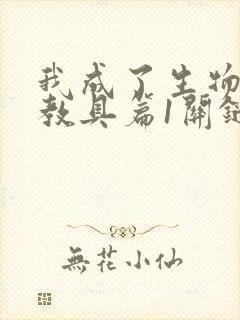 我成了生物
教具篇1關鍵
無花小仙